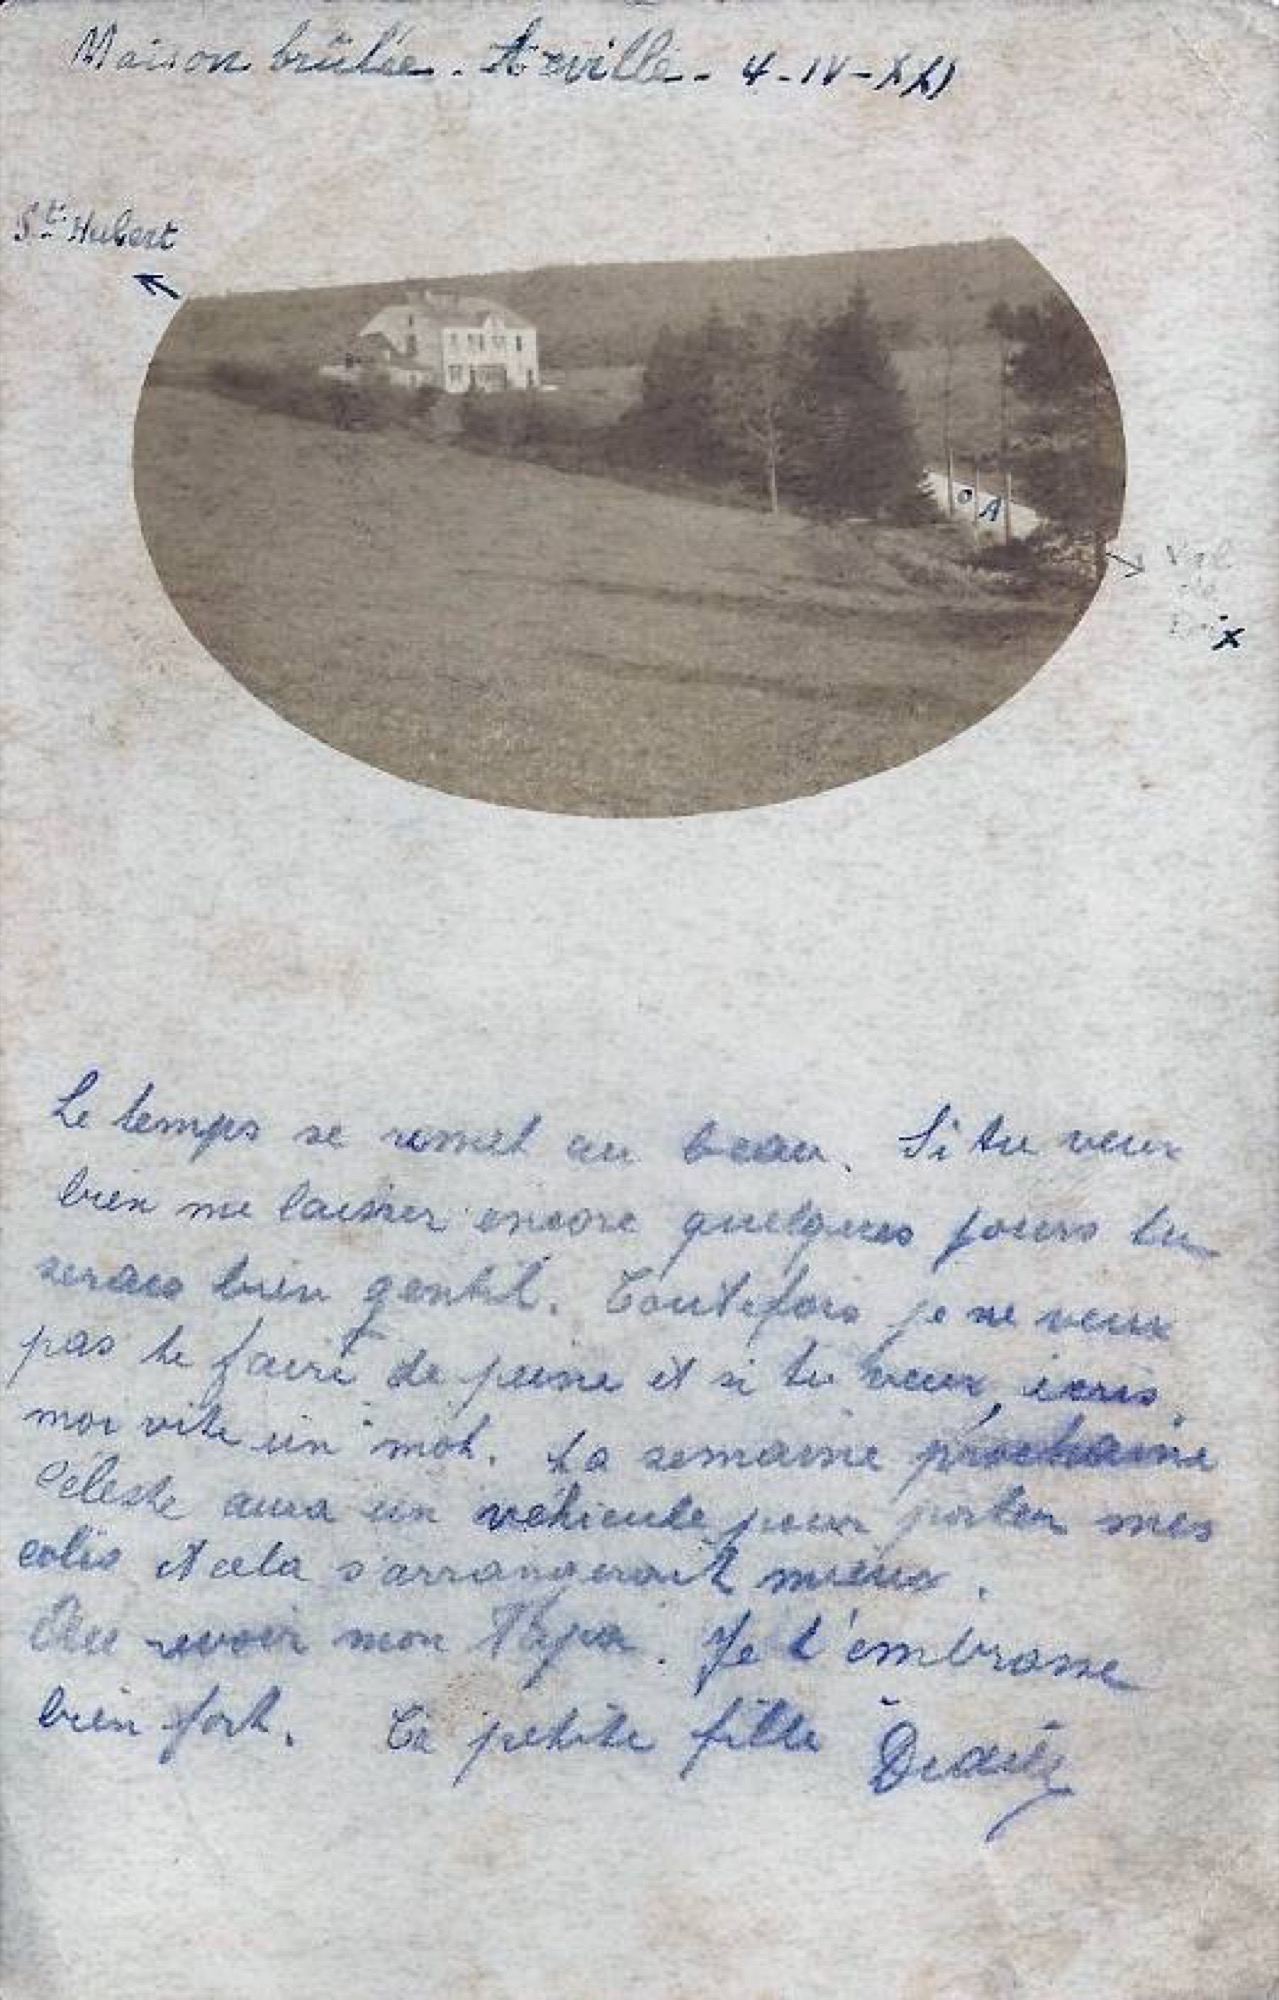 Maison brûlée. Arville. 4-IV-XXI
St. Hubert
O A
Val
de
x
Le temps se remet au beau. Si tu veux
bien me laisser encore quelques jours tu
serais bien gentil. Toutefois je ne veux
pas te faire de peine et si tu veux, écris
moi vite un mot. La semaine prochaine
Céleste aura un véhicule pour porter mes
colis et cela s'arrangerait mieux.
Au revoir mon Papa. Je t'embrasse
bien fort. Ta petite fille